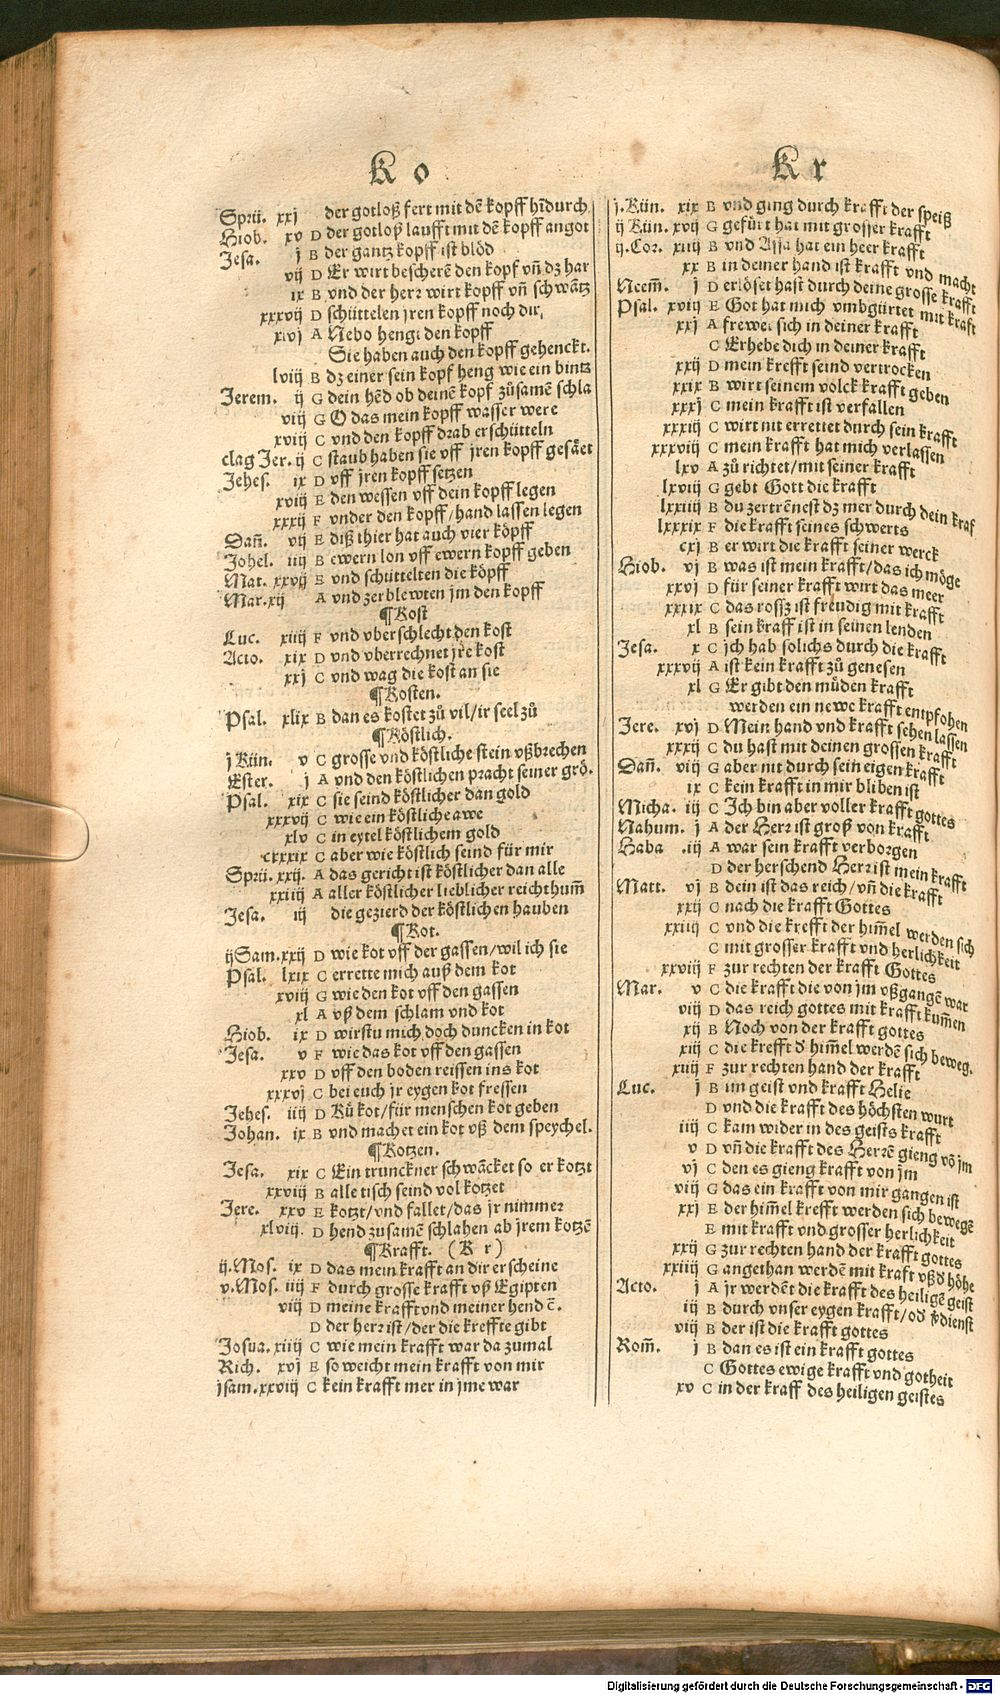 K o
Sprü. xxj der gotloß fert mit dē kopff hīdurch
Hiob. xv D der gotloß laufft mit dē kopff an got
Jesa. j B der gantz kopff ist blöd
vij D Er wirt bescherē den kopf vn̄ dz har
ix B vnd der herr wirt kopff vn̄ schwātz
xxxvij D schüttelen jren kopff noch dir,
xlvj A Nebo hengt den kopff
Sie haben auch den kopff gehenckt.
lviij B dz einer sein kopf heng wie ein bintz
Jerem. ij G dein hēd ob deinē kopf zůsamē schla
viij G O das mein kopff wasser were
xviij C vnd den kopff drab erschütteln
clag Jer. ij C staub haben sie vff jren kopff gesäet
Jehes. ix D vff jren kopff setzen
xviij E den wessen vff dein kopff legen
xxxij F vnder den kopff/hand lassen legen
Dan̄. vij E diß thier hat auch vier köpff
Johel. iij B ewern lon vff ewern kopff geben
Mat. xxvij E vnd schüttelten die köpff
Mar. xij A vnd zerblewten jm den kopff
¶Kost
Luc. xiiij F vnd vberschlecht den kost
Acto. xix D vnd vberrechnet jre kost
xxj C vnd wag die kost an sie
¶Kosten.
Psal. xlix B dan es kostet zů vil/ir seel zů
¶Köstlich.
j Kün. v C grosse vnd köstliche stein vßbrechen
Ester. j A vnd den köstlichen pracht seiner grö.
Psal. xix C sie seind köstlicher dan gold
xxxvij C wie ein köstliche awe
xlv C in eytel köstlichem gold
cxxxix C aber wie köstlich seind für mir
Sprü. xxij. A das gericht ist köstlicher dan alle
xxiiij A aller köstlicher lieblicher reichthum̄
Jesa. iij die gezierd der köstlichen hauben
¶Kot.
ij Sam. xxij D wie kot vff der gassen/wil ich sie
Psal. lxix C errette mich auß dem kot
xviij G wie den kot vff den gassen
xl A vß dem schlam vnd kot
Hiob. ix D wirstu mich doch duncken in kot
Jesa. v F wie das kot vff den gassen
xxv D vff den boden reissen ins kot
xxxvj C bei euch jr eygen kot fressen
Jehes. iiij D Ků kot/für menschen kot geben
Johan. ix B vnd machet ein kot vß dem speychel.
¶Kotzen.
Jesa. xix C Ein trunckner schwācket so er kotzt
xxviij B alle tisch seind vol kotzet
Jere. xxv E kotzt/vnd fallet/das jr nimmer
xlviij. D hend zusamē schlahen ab jrem kotzē
¶Krafft. (K r)
ij. Mos. ix D das mein krafft an dir erscheine
v. Mos. iiij F durch grosse krafft vß Egipten
viij D meine krafft vnd meiner hend ē.
D der herr ist/der die kreffte gibt
Josua. xiiij C wie mein krafft war da zumal
Rich. xvj E so weicht mein krafft von mir
j sam. xxviij C kein krafft mer in jme war
K r
j. Kün. xix B vnd ging durch krafft der speiß
ij Kün. xvij G gefürt hat mit grosser krafft
ij. Cor. xiiij B vnd Assa hat ein heer krafft
xx B in deiner hand ist krafft vnd macht
Neem̄. j D erlöset hast durch deine grosse krafft
Psal. xviij E Got hat mich vmbgürtet mit kraft
xxj A frewet sich in deiner krafft
C Erhebe dich in deiner krafft
xxij D mein krefft seind vertrocken
xxix B wirt seinem volck krafft geben
xxxj C mein krafft ist verfallen
xxxiij C wirt nit errettet durch sein krafft
xxxviij C mein krafft hat mich verlassen
lxv A zů richtet/mit seiner krafft
lxviij G gebt Gott die krafft
lxxiiij B du zertrēnest dz mer durch dein kraf
lxxxix F die krafft seines schwerts
cxj B er wirt die krafft seiner werck
Hiob. vj B was ist mein krafft/das ich möge
xxvj D für seiner krafft wirt das meer
xxxix C das rossz ist freudig mit krafft
xl B sein kraff ist in seinen lenden
Jesa. x C jch hab solichs durch die krafft
xxxvij A ist kein krafft zů genesen
xl G Er gibt den müden krafft
werden ein newe krafft entpfohen
Jere. xvj D Mein hand vnd krafft sehen lassen
xxxij C du hast mit deinen grossen krafft
Dan̄. viij G aber nit durch sein eigen krafft
ix C kein krafft in mir bliben ist
Micha. iij C Ich bin aber voller krafft gottes
Nahum. j A der Herr ist groß von krafft
Haba .iij A war sein krafft verborgen
D der herschend Herr ist mein krafft
Matt. vj B dein ist das reich/vn̄ die krafft
xxij C nach die krafft Gottes
xxiiij C vnd die krefft der him̄el werden sich
C mit grosser krafft vnd herlichkeit
xxviij F zur rechten der krafft Gottes
Mar. v C die krafft die von jm vßgangē war
viij D das reich gottes mit krafft kum̄en
xij B Noch von der krafft gottes
xiij C die krefft d̓ him̄el werdē sich beweg.
xiiij F zur rechten hand der krafft
Luc. j B im geist vnd krafft Helie
D vnd die krafft des höchsten wurt
iiij C kam wider in des geists krafft
v D vn̄ die krafft des Herrē gieng vō jm
vj C den es gieng krafft von jm
viij G das ein krafft von mir gangen ist
xxj E der him̄el krefft werden sich bewegē
E mit krafft vnd grosser herlichkeit
xxij G zur rechten hand der krafft gottes
xxiiij G angethan werdē mit kraft vß d̓ höhe
Acto. j A jr werdēt die krafft des heiligē geist
iij B durch vnser eygen krafft/od̓ v̓dienst
viij B der ist die krafft gottes
Rom̄. j B dan es ist ein krafft gottes
C Gottes ewige krafft vnd gotheit
xv C in der kraff des heiligen geistes
Digitalisierung gefördert durch die Deutsche Forschungsgemeinschaft - DFG